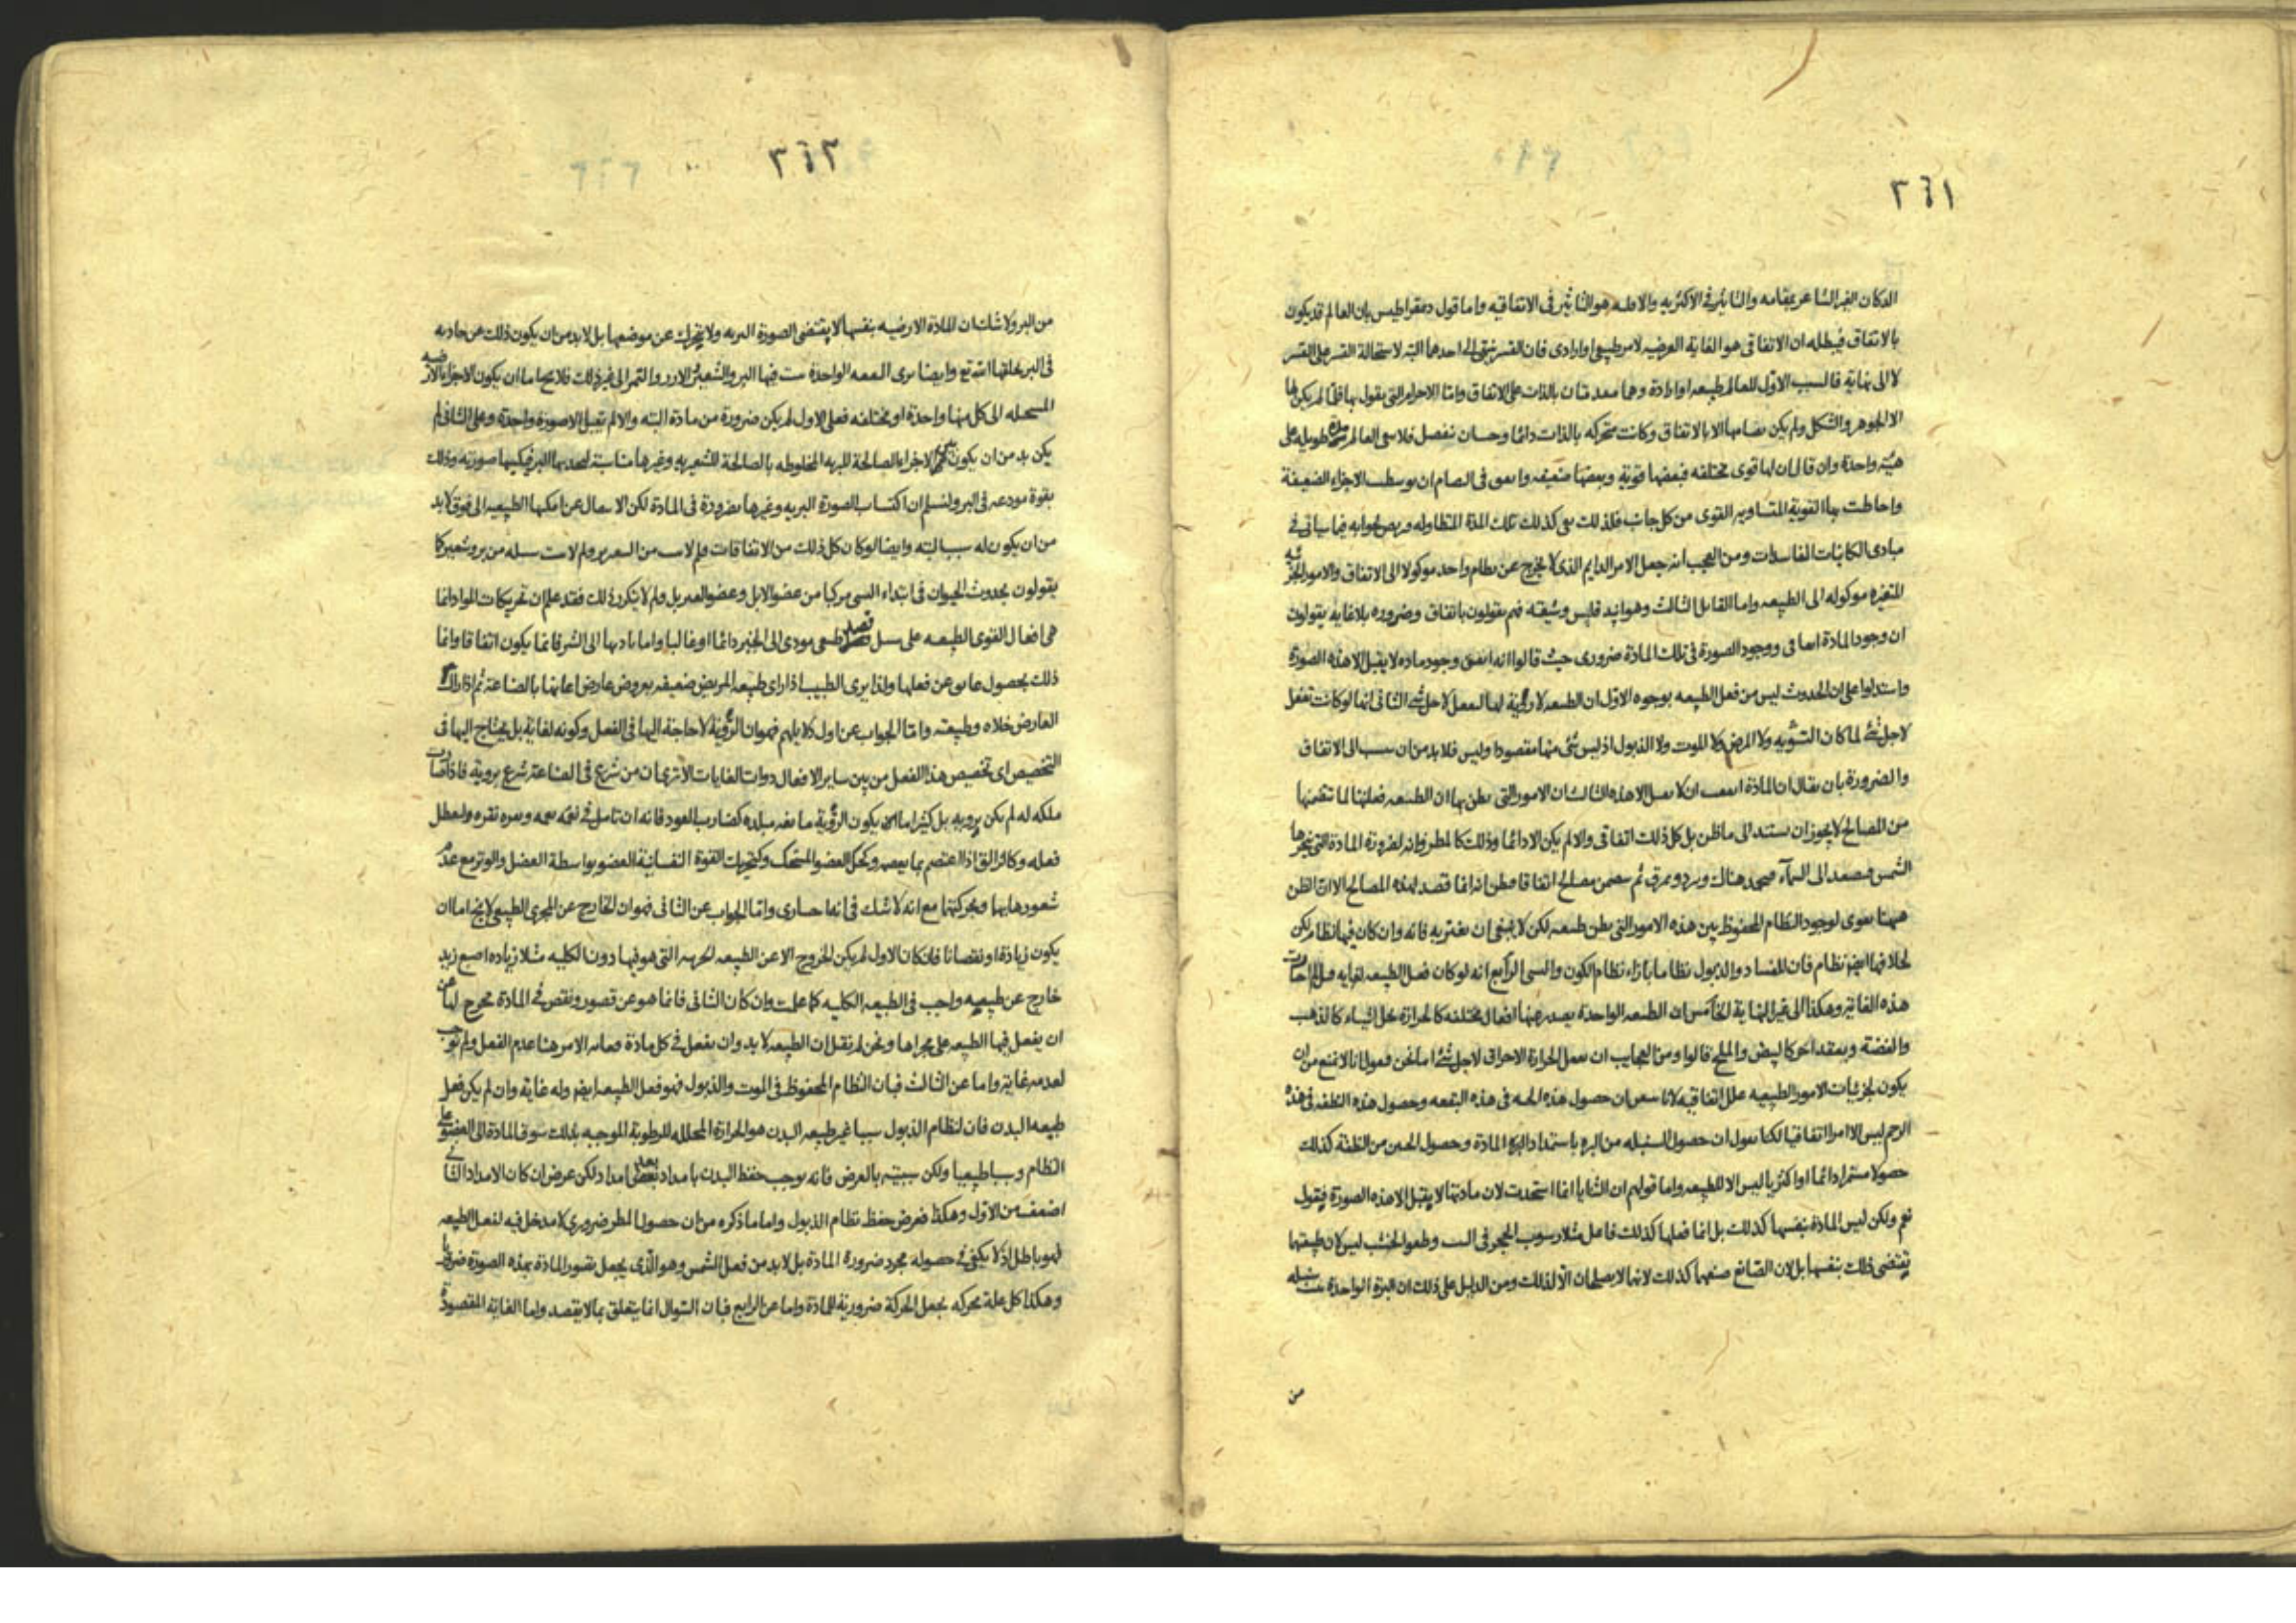 ٢٦١
الدكان الغير الشاعر بمقامه والتاثير في الاكثريه والا هو التاثير في الاتفاقيه واما قول دمقراطيس بان العالم قد يكون
بالاتفاق فيبطله ان الاتفاقى هو الغاية العرضيه لامر طبيعي او ارادى فان القسر ينتهى الى احدهما البته لاستحالة القسر على القسر
لا الى نهاية فالسبب الاول للعالم طبيعه او ارادة وهما متقدمتان بالذات على الاتفاق وامّا الاجرام التى يقول بها فلمّا لم يكن لها
الا الجوهر والشكل ولم يكن نضامها الا بالاتفاق وكانت متحركه بالذات دائما تنفصل فلا العالم مدة طويله على
هيئة واحدة وان قال ان لها قوى مختلفه فبعضها قوية وبعضها ضعيفه واتفق فى ان توسطت الاجزاء الضعيفة
واحاطت بها القوية المتساويه القوى من كل جانب فلذلك بقى كذلك تلك المدة المتطاوله جوابه فيما سياتى فى
مبادى الكائنات الفاسدات ومن العجب انه جعل الامر الدايم الذى لا يخرج عن نظام واحد موكولا الى الاتفاق والامور الجزئيه
المتغيره موكوله الى الطبيعه واما القايل الثالث وهو انباذقليس وشيعته فهم يقولون باتفاق وضروره بلا غايه يقولون
ان وجود المادة اتفاقى ووجود الصورة فى تلك المادة ضرورى حيث قالوا انه اتفق وجود ماده لا يقبل الا هذه الصورة
واستدلوا على ان الحدوث ليس من فعل الطبيعه بوجوه الاول ان الطبيعه لا روية لها لتفعل لاجل شئ الثانى انها لو كانت تفعل
لاجل شئ لما كان التشويه ولا المرض ولا الموت ولا الذبول اذ ليس شئ منها مقصودا وليس فلا بد من ان ينسب الى الاتفاق
والضرورة بان يقال ان المادة اتفقت ان لا تقبل الا هذه الثالث ان الامور التى يظن بها ان الطبيعه فعلتها لما تتضمنها
من المصالح لا يجوز ان يستند الى ما ظن بل كل ذلك اتفاقى والا لم يكن الا دائما وذلك كالمطر فانه لضرورة المادة التى يبخرها
الشمس فيصعد الى السماء هناك ويبرد ثم يتضمن مصالح اتفاقا فيظن انه انما قصد لهذه المصالح الا ان الظن
ههنا يقوى لوجود النظام المحفوظ بين هذه الامور التى يظن طبيعيه لكن لا ينبغى ان يغتر به فانه وان كان فيها نظام لكن
لخلافها ايضا نظام فان للفساد والذبول نظاما بازاء نظام الكون والنشو الرابع انه لو كان فعل الطبيعه لغايه
هذه الغاية وهكذا الى غير النهاية الخامس ان الطبيعه الواحدة يصدر عنها افعال مختلفه كالحرارة تحل اشياء كالذهب
والفضة وبعقد اخر كالبيض والملح قالوا ومن العجايب ان تفعل الحرارة الاحراق لاجل شئ اما نحن فنقول انا لا نمنع من ان
يكون لجزئيات الامور الطبيعيه علل اتفاقيه لانا ان حصول هذه الحبه فى هذه البقعه وحصول هذه النطفه فى هذه
الرحم ليس الا امرا اتفاقيا لكنا نقول ان حصول السنبله من البره باستمداد البرة المادة وحصول الجنين من النطفة كذلك
حصولا مستمرا دائما او اكثريا ليس الا للطبيعه واما قولهم ان الثنايا انما استحدت لان مادتها لا يقبل الا هذه الصورة فيقول
نعم ولكن ليس المادة بنفسها كذلك بل انما فعلها كذلك فاعل مثلا رسوب الحجر فى وطفو الخشب ليس لان طبيعتها
يقتضى ذلك بنفسها بل لان الصانع صنعهما كذلك لانها لا يصلحان الا لذلك ومن الدليل على ذلك ان البرة الواحدة تنبت سنبله
من
٢٦٢
من البر ولا شك ان المادة الارضيه بنفسها لا يقتضى الصورة البريه ولا يتحرك عن موضعها بل لا بد من ان يكون ذلك من جاذبه
فى البر وايضا نرى البقعه الواحدة نبت فيها البر والشعير والارز والتمر الى غير ذلك فلا يخ اما ان يكون الاجزاء الارضيه
المستحيله الى كل منها واحدة او مختلفه فعلى الاول لم يكن ضرورة من مادة البته والا لم تقبل الا صورة واحدة وعلى الثانى لم
يكن بد من ان يكون الاجزاء الصالحة للبريه المخلوطه بالصالحة للشعيريه وغيرها مناسبة لتجذبها البر فيكسيها صورته وذلك
بقوة مودعه فى البر ولنسلم ان اكتساب الصورة البريه وغيرها بضرورة فى المادة لكن الانتقال عن امكنتها الطبيعيه الى فوق لا بد
من ان يكون له سبب البته وايضا لو كان كل ذلك من الاتفاقات فلم لا ولم لا ينبت سنبله من بر وشعير كما
يقولون بحدوث الحيوان فى ابتداء النشو مركبا من عضو الابل وعضو ولم لا يتكرر ذلك فقد علم ان تحريكات المواد انما
هى افعال القوى الطبيعيه على سبيل قصد طبيعى مودى الى الخير دائما او غالبا واما تاديها الى الشر فانما يكون اتفاقا وانما
ذلك بحصول عايق عن فعلها ولذا يرى الطبيب اذا راى طبيعه المريض ضعيفه بعروض عارض اعانها بالصناعة ثم اذا زال
العارض خلاه وطبيعته وامّا الجواب عن اول دلايلهم فهو ان الروية لا حاجة اليها فى الفعل وكونه لغاية بل يحتاج اليها فى
التخصيص اى تخصيص هذا الفعل من بين ساير الافعال ذوات الغايات الا ترى ان من شرع فى الصناعة شرع بروية فاذا صارت
ملكه له لم يكن بروية بل كثيرا ما يكون الروية مانعه مبلده كضارب العود فانه ان تامل فى نغمة نغمه ونقره نقره ولتعطل
فعله وكالزالق اذا اعتصم بما يعصمه وكحك العضو المستحك وكتحريك القوة النفسانية العضو بواسطة العضل والوتر مع عدم
شعورها بها وبتحريكها مع انه لا شك فى انها وامّا الجواب عن الثانى فهو ان الخارج عن المجرى الطبيعى لا يخ اما ان
يكون زيادة او نقصانا فان كان الاول لم يكن الخروج الا عن الطبيعه الجزئيه التى هو فيها دون الكليه مثلا زياده اصبع زيد
خارج عن طبيعته واجب فى الطبيعه الكليه كما علمت وان كان الثانى فانما هو عن قصور ونقص فى المادة عن
ان يفعل فيها الطبيعه على مجراها ونحن لم نقل ان الطبيعه لا بد وان يفعل فى كل مادة فغايه الامر هنا عدم الفعل ولم نوجب
لعدمه غاية واما عن الثالث فبان النظام المحفوظ فى الموت والذبول فهو فعل الطبيعه ايضا وله غاية وان لم يكن فعل
طبيعه البدن فان لنظام الذبول سببا غير طبيعه البدن هو الحرارة المحلله للرطوبة الموجبه بذلك سوق المادة الى العضو على
النظام وسببا طبيعيا ولكن سببيته بالعرض فانه يوجب حفظ البدن بامداد بعد امداد لكن عرض ان كان الامداد الثانى
اضعف من الاول وهكذا فعرض حفظ نظام الذبول واما ما ذكره من ان حصول المطر ضرورى لا مدخل فيه لفعل الطبيعه
فهو باطل اذ لا يكفى فى حصوله مجرد ضرورة المادة بل لا بد من فعل الشمس وهو الذى يجعل تصور المادة بهذه الصورة ضروريا
وهكذا كل علة محركه يجعل الحركة ضرورية للمادة واما عن الرابع فبان السؤال انما يتعلق بما لا يقصد واما الغاية المقصودة